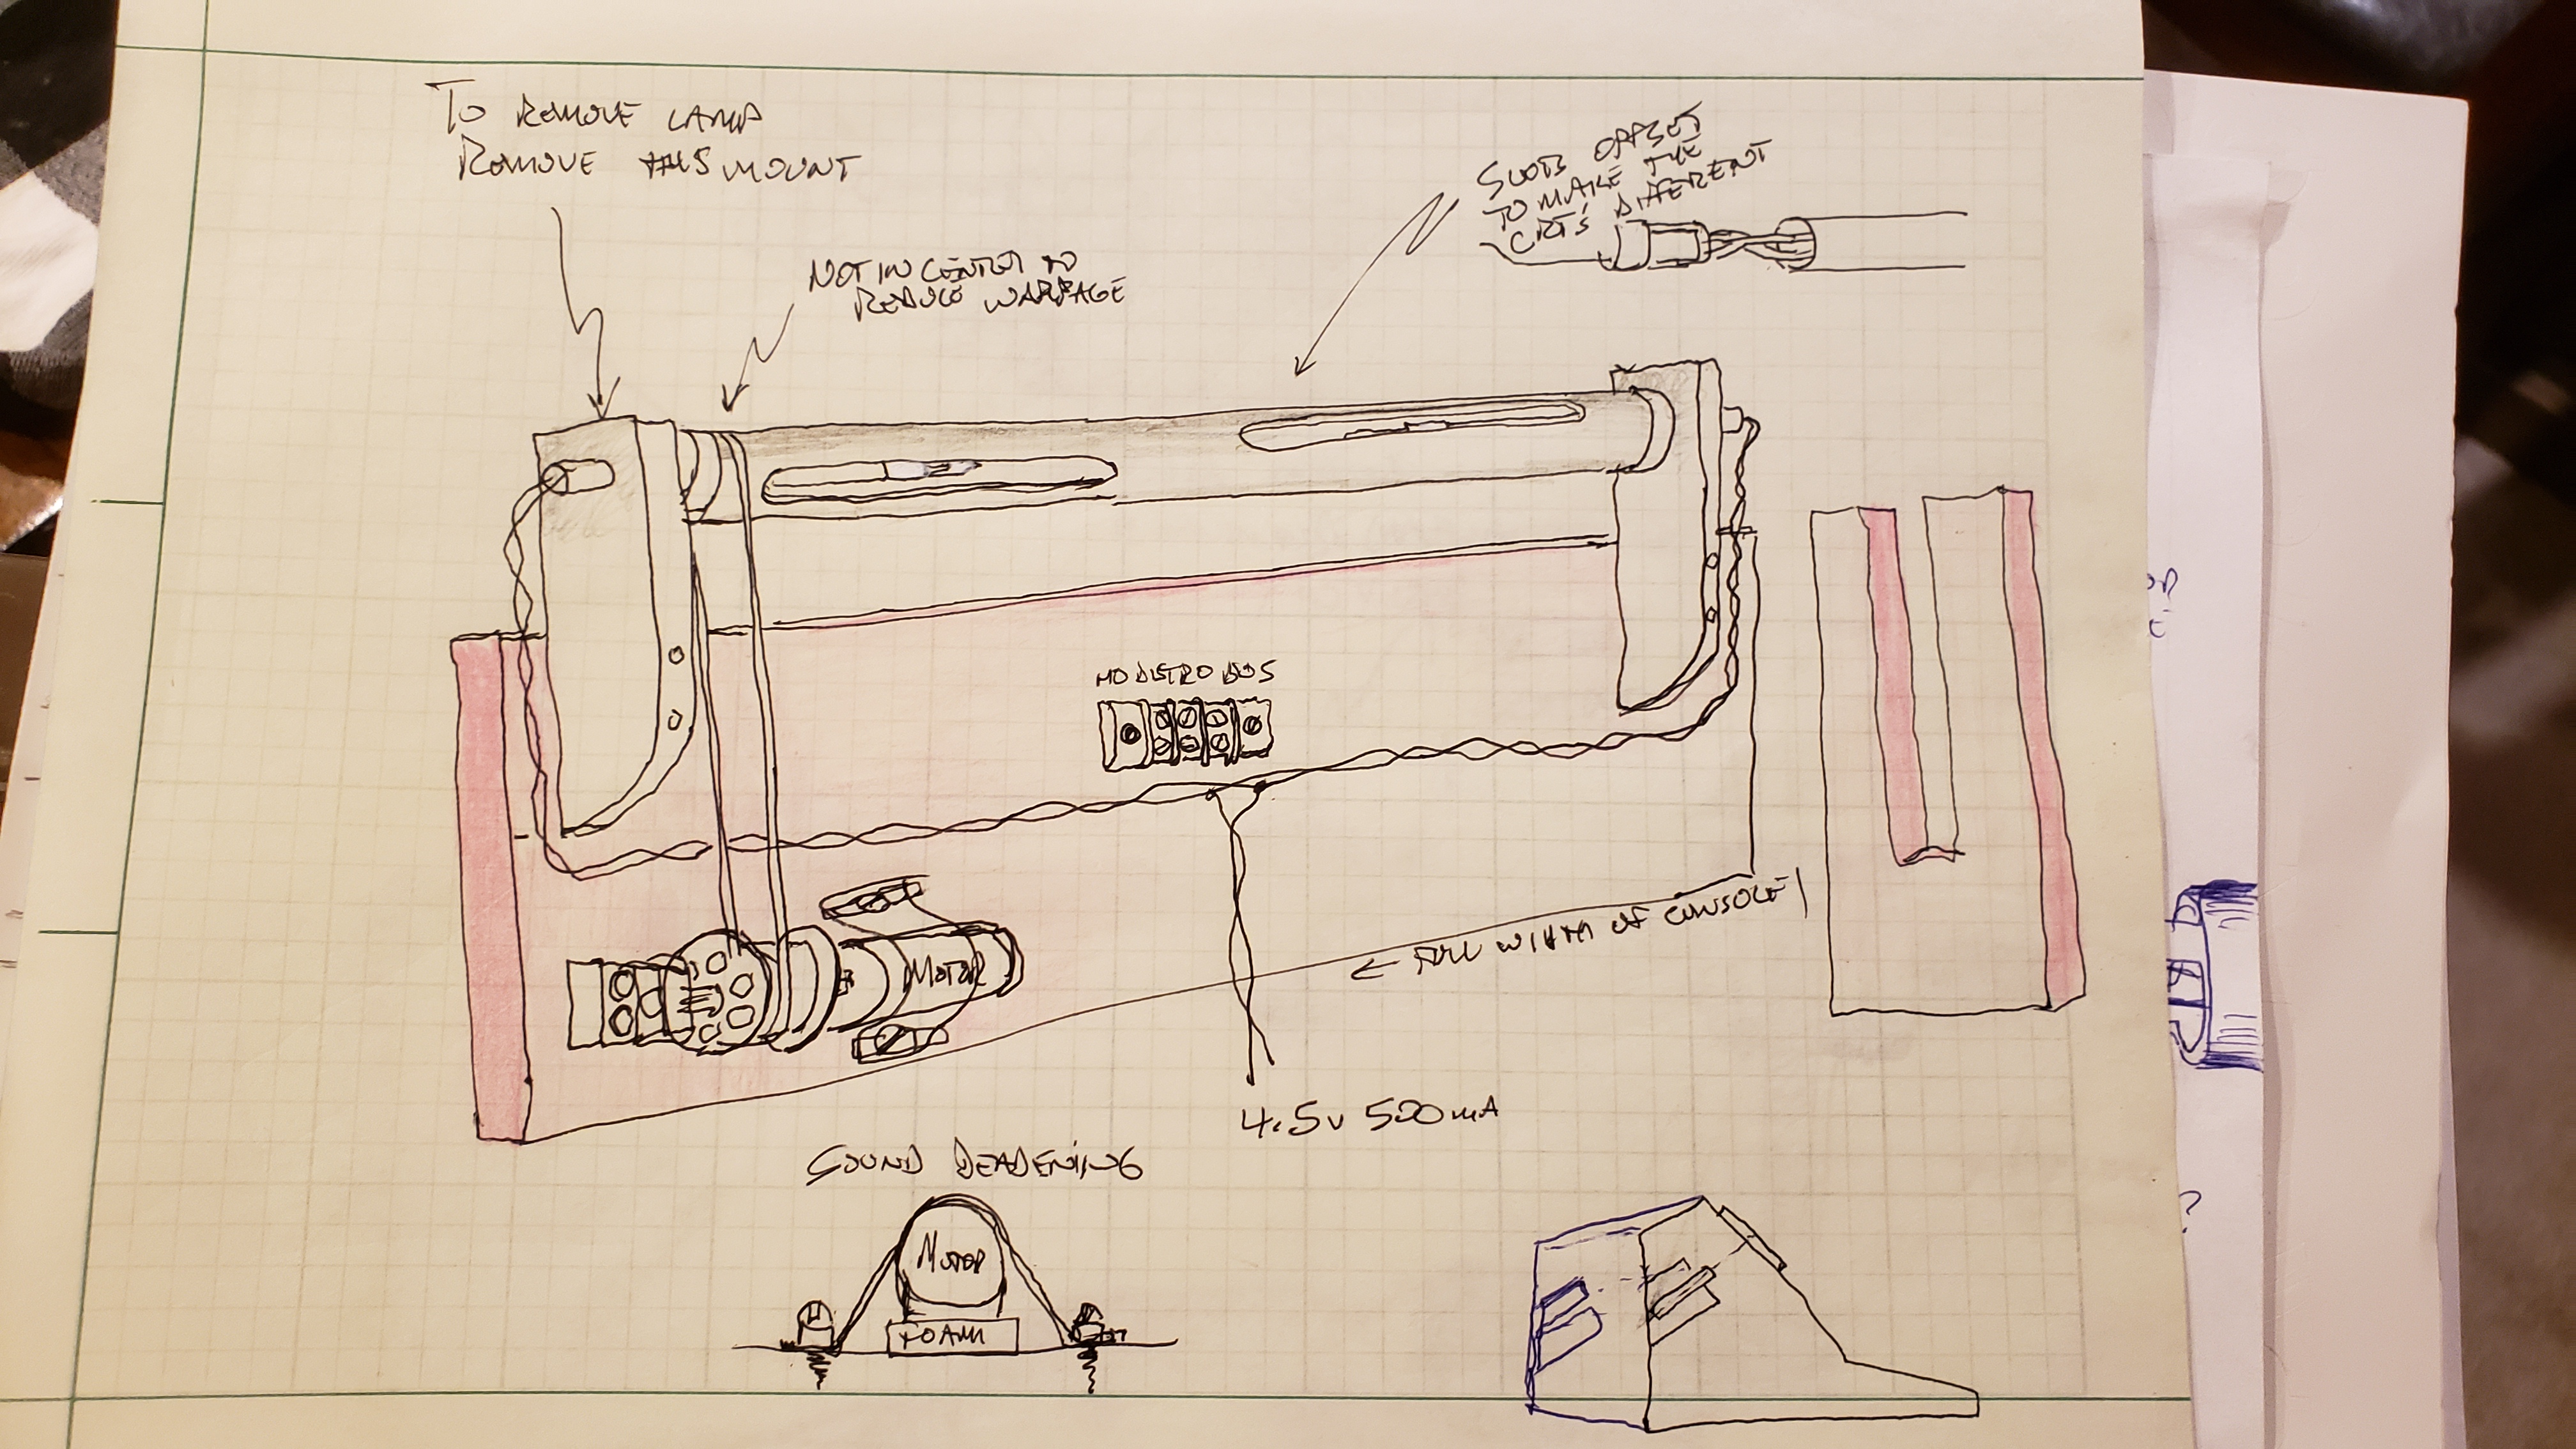 TO REMOVE LAMP
REMOVE THIS MOUNT
SLOTS OFFSET
TO MAKE THE
CRT'S DIFFERENT
NOT IN CENTER TO
REDUCE WARPAGE
DISTRO BUS
MOTOR
← FULL WIDTH OF CONSOLE
4.5V 500mA
SOUND DEADENING
MOTOR
FOAM
?